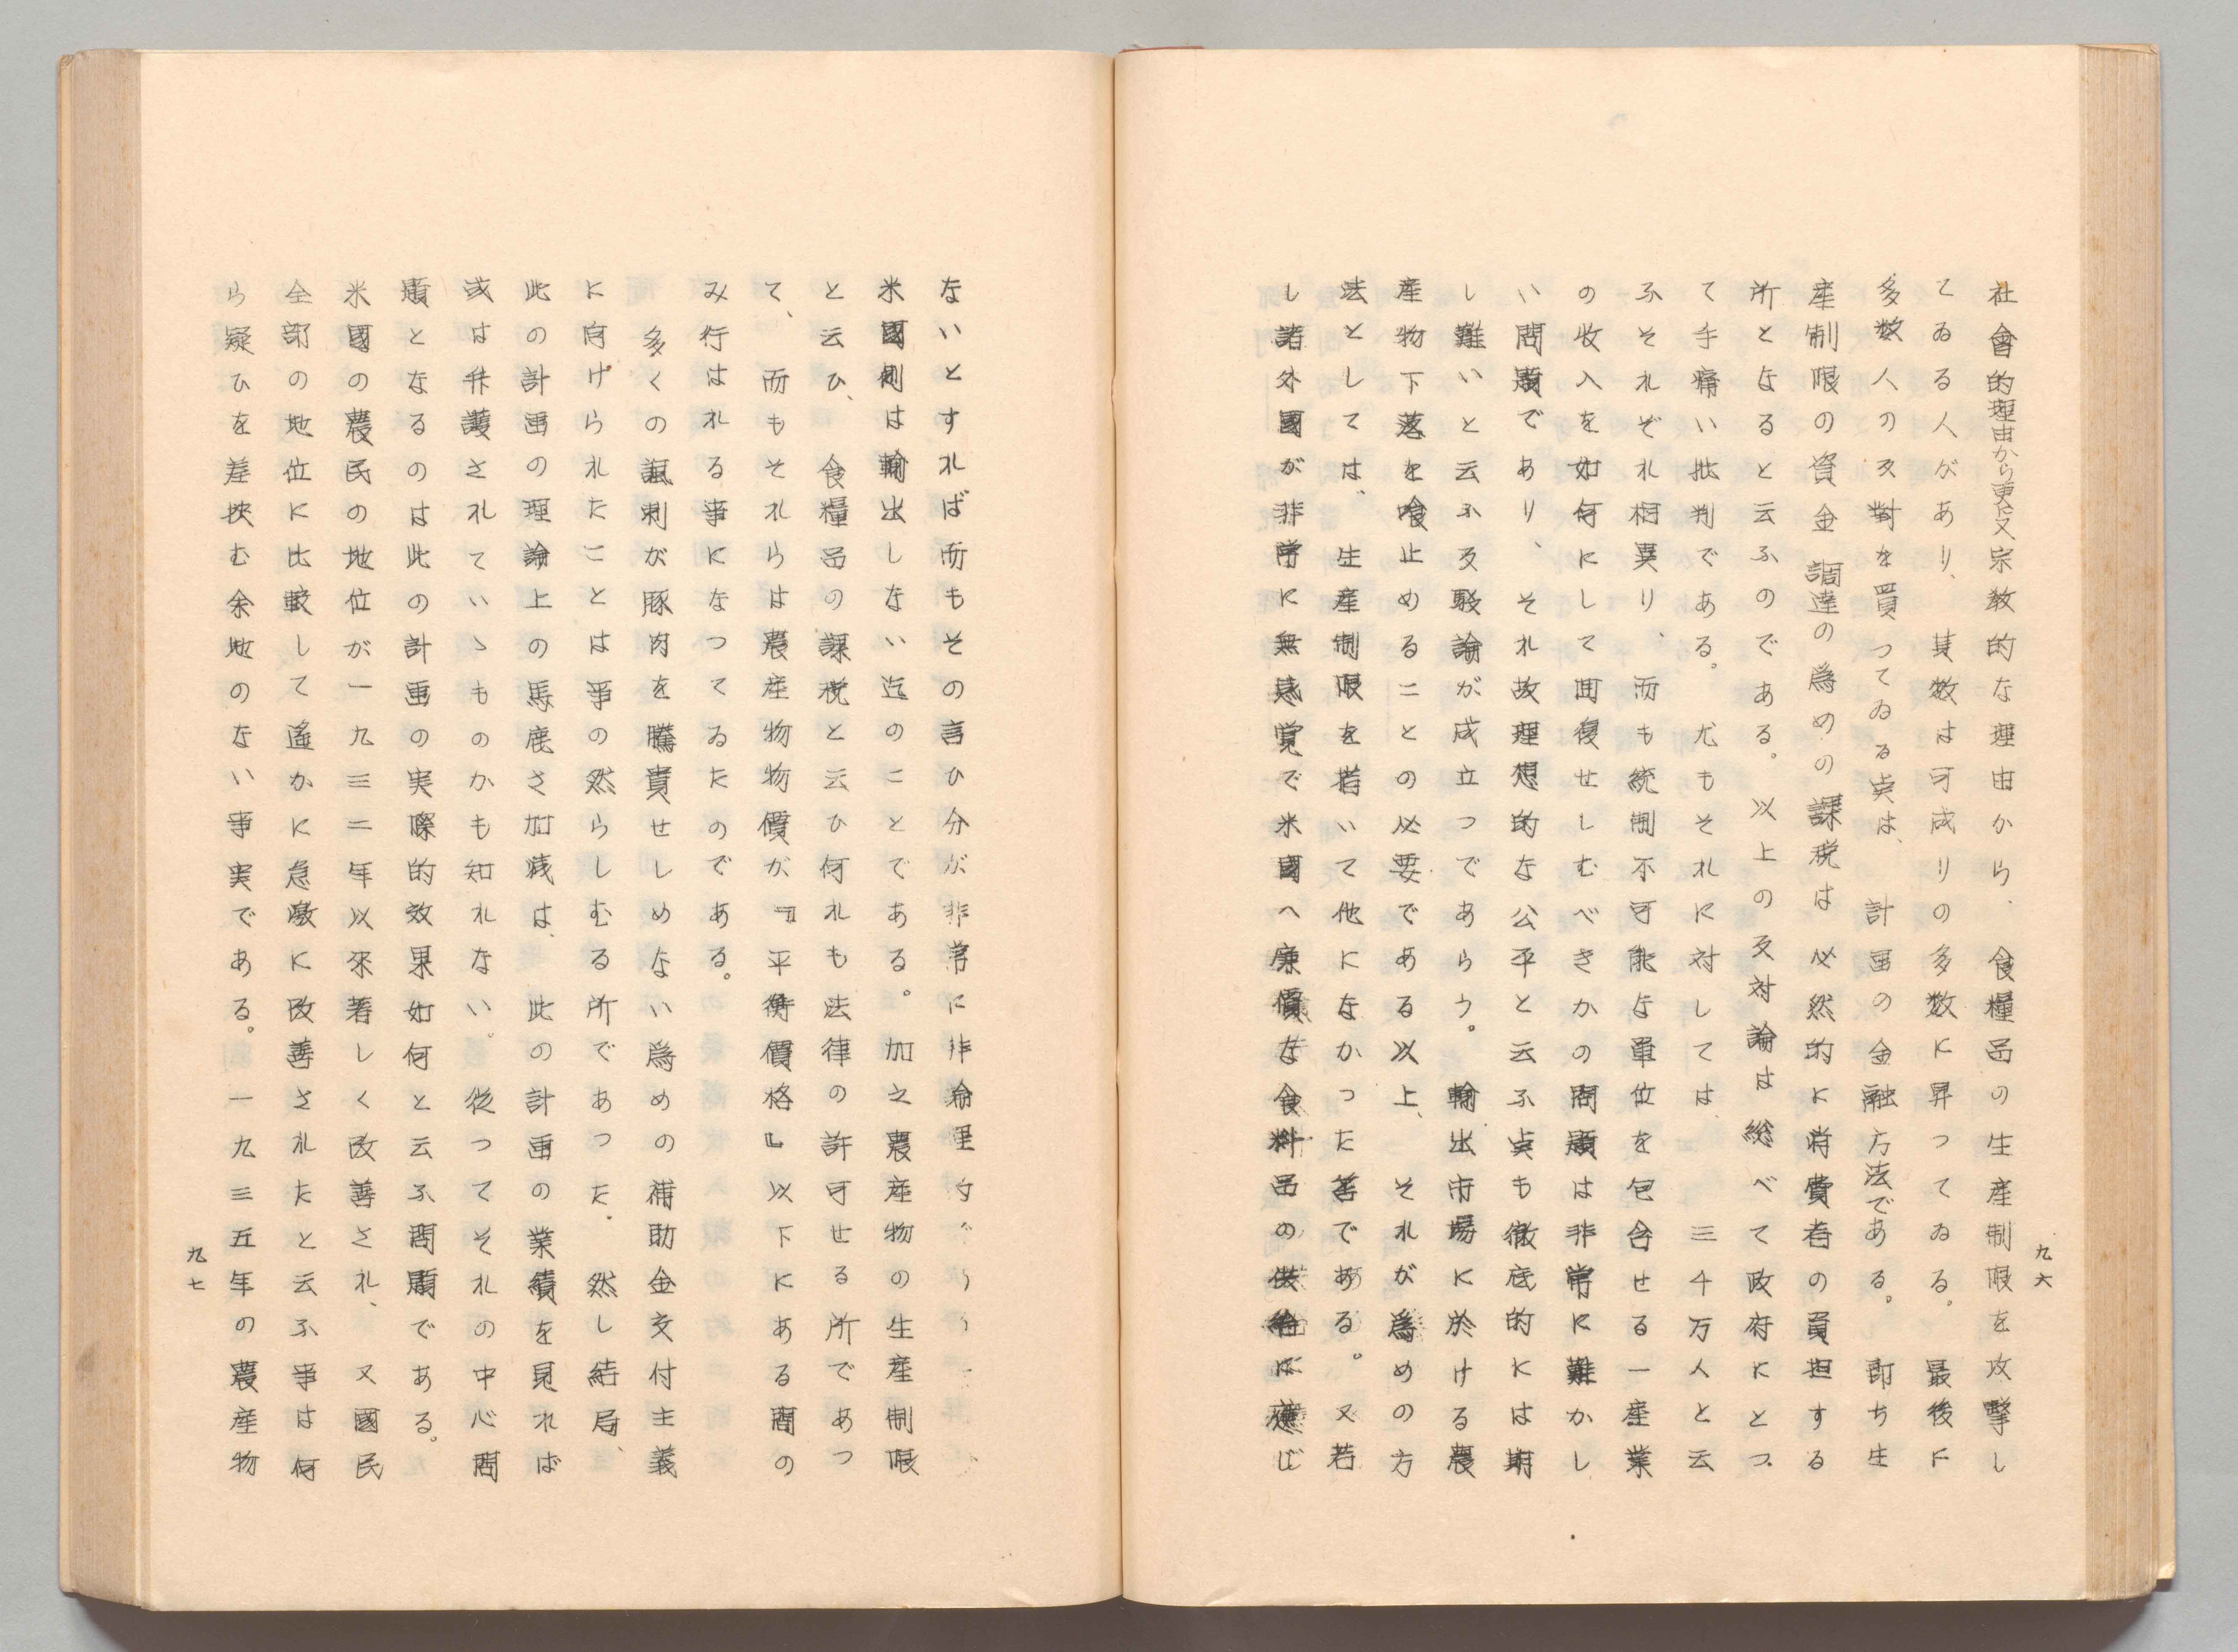 九六
社會的理由から更に又宗教的な理由から、食糧品の生産制限を攻撃し
てゐる人があり、其数は可成りの多数に昇つてゐる。最後に
多数人の反對を買つてゐる点は、計画の金融方法である。即ち生
産制限の資金調達の為めの課税は必然的に消費者の負担する
所となると云ふのである。以上の反対論は総べて政府にとつ
て手痛い批判である。尤もそれに対しては、三千万人と云
ふそれぞれ相異り、而も統制不可能な單位を包含せる一産業
の收入を如何にして回復せしむべきかの問題は非常に難かし
い問題であり、それ故理想的な公平と云ふ点も徹底的には期
し難いと云ふ反駁論が成立つであらう。輸出市場に於ける農
産物下落を喰止めることの必要である以上、それが為めの方
法としては、生産制限を措いて他になかつた筈である。又若
し諸外國が非常に無感覚で米國へ廉價な食料品の供給に應じ
ないとすれば而もその言ひ分が非常に非論理的
米國側は輸出しない迄のことである。加之農産物の生産制限
と云ひ、食糧品の課税と云ひ何れも法律の許可せる所であつ
て、而もそれらは農産物物價が『平衡價格』以下にある間の
み行はれる事になつてゐたのである。
多くの諷刺が豚肉を騰貴せしめない為めの補助金交付主義
に向けられたことは事の然らしむる所であつた。然し結局、
此の計画の理論上の馬鹿さ加減は、此の計画の業績を見れば
或は弁護されていゝものかも知れない。従つてそれの中心問
題となるのは此の計画の実際的效果如何と云ふ問題である。
米國の農民の地位が一九三二年以來著しく改善され、又國民
全部の地位に比較して遙かに急激に改善されたと云ふ事は何
ら疑ひを差挾む余地のない事実である。一九三五年の農産物
九七